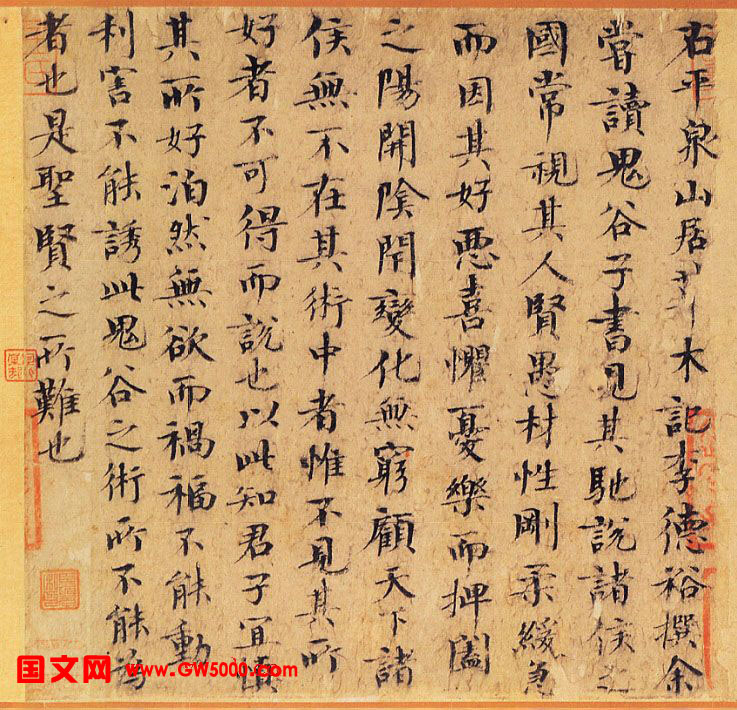 右平泉山居艸木記李德裕撰余
嘗讀鬼谷子書見其馳說諸侯之
國常視其人賢愚材性剛柔緩急
而因其好惡喜懼憂樂而捭闔
之陽開陰閉變化無窮顧天下諸
侯無不在其術中者惟不見其所
好者不可得而說也以此知君子宜慎
其所好泊然無欲而禍福不能動
利害不能誘此鬼谷之術所不能為
者也是聖賢之所難也
国文网 www.GW5000.com